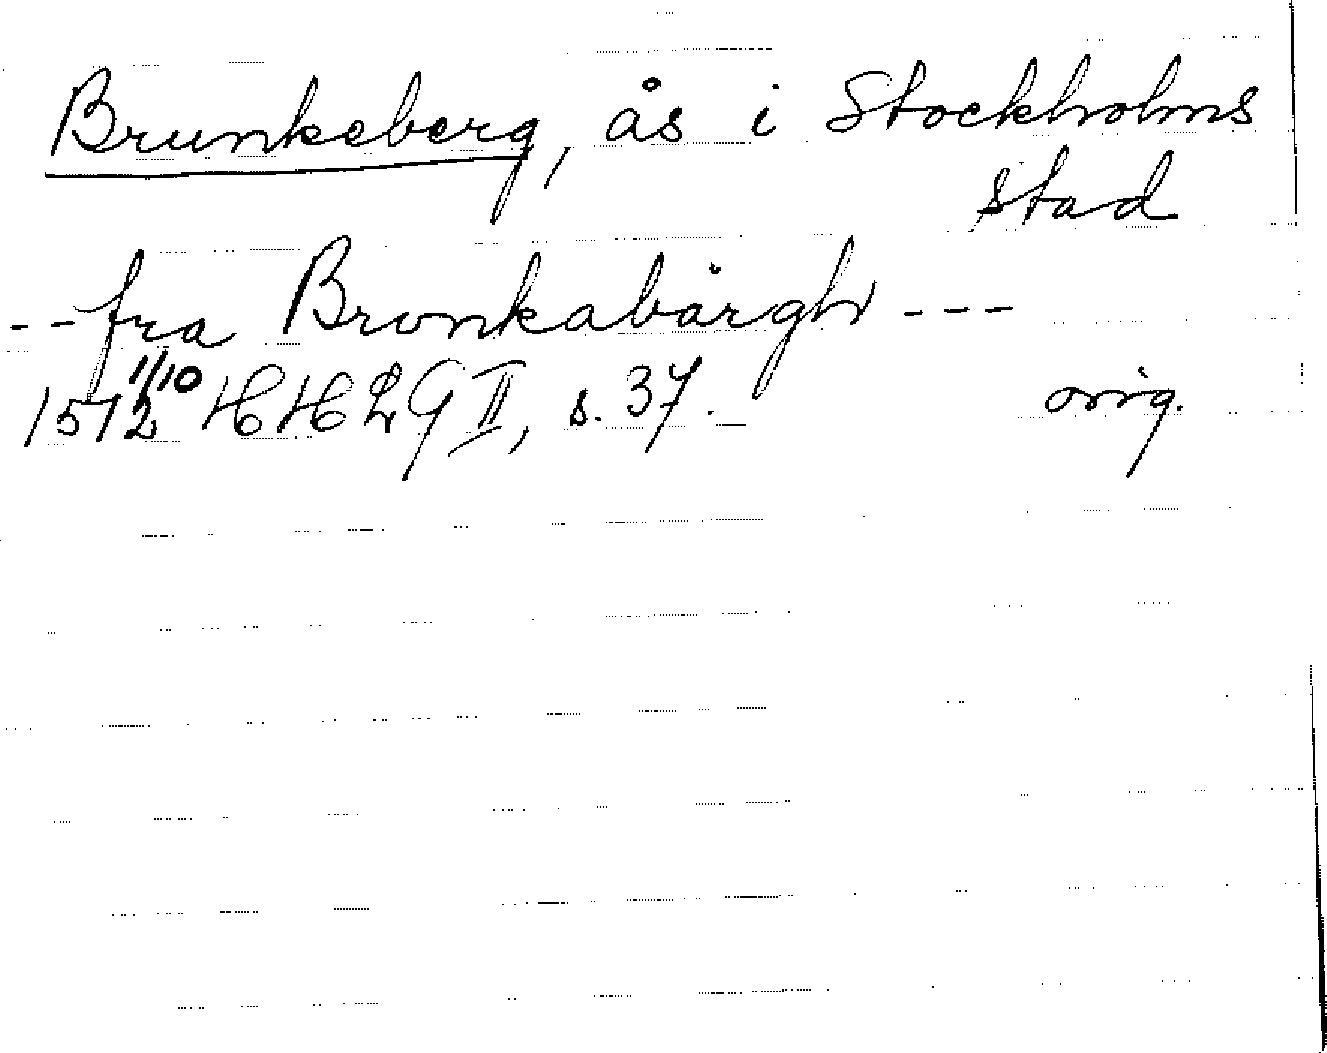 Brunkeberg, ås i Stockholms
stad
-- fra Bronkabärgh ---
1512 1/10 HHLG II, s. 37. orig.